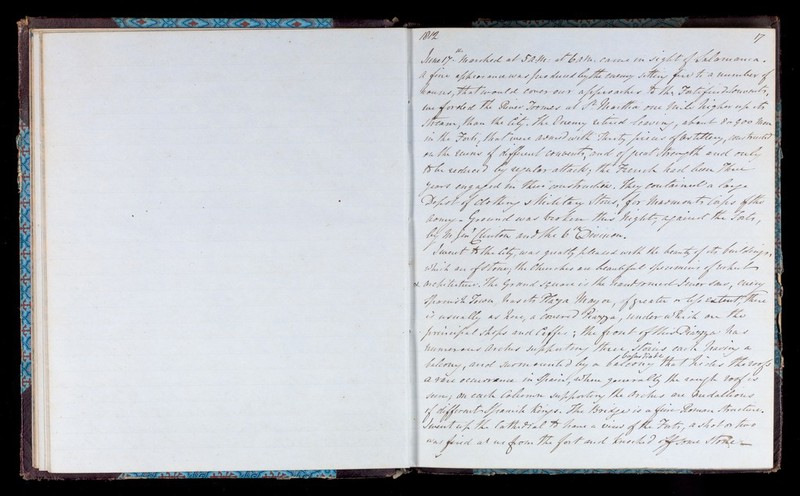 1812 17
June 17th Marched at 5 AM. at 6 AM. came in sight of Salamanca.
A fine appearance was produced by the enemy setting fire to a number of
houses, that would cover our approaches to the Forts from the Convents,
we forded the River Tormes at St. Martha one mile higher up the
stream, than the City. The Enemy retired leaving, about 800 Men
in the Forts, that were armed with thirty pieces of artillery, constructed
on the ruins of different convents, and of great strength and only
to be reduced by regular attack; the French had been three
years engaged in their construction. they contained a large
Depot of clothing & Military Stores, for Marmont's Corps of the
Army - Ground was broken this Night, against the Forts,
by M. Genl Clinton and the 6th Division.
I went to the City, was greatly pleased with the beauty of its buildings,
which are of stone, the Churches are beautiful specimens of
x architecture. The Grand Square is the handsomest I ever saw, every
Spanish Town has its Plaza Mayor, of greater or less extent, there
is usually as here, a covered Piazza, under which are the
principal shops and Coffee; the front of this Piazza has
numerous Arches supporting three stories each having a
balcony, and surmounted by a balustrade that hides the roofs
a rare occurrence in Spain, where generally the rough roof is
seen, on each Column supporting the Arches are medallions
of different Spanish Kings. The Bridge is a fine Roman structure.
I went up the Cathedral to have a view of the Forts, a shot or two
was fired at us from the fort and knocked off some Stone